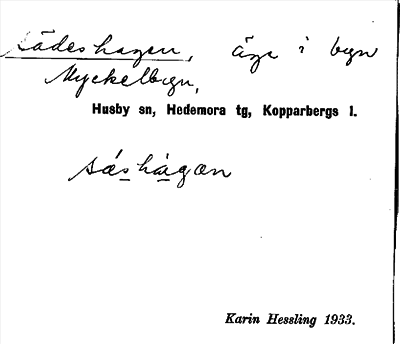 Sädeshagen, äga i byn
Myckelbyn,
Husby sn, Hedemora tg, Kopparbergs l.
sá̱s hà̱gæn
Karin Hessling 1933.